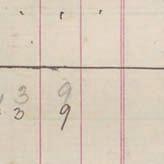 3 9
3 9